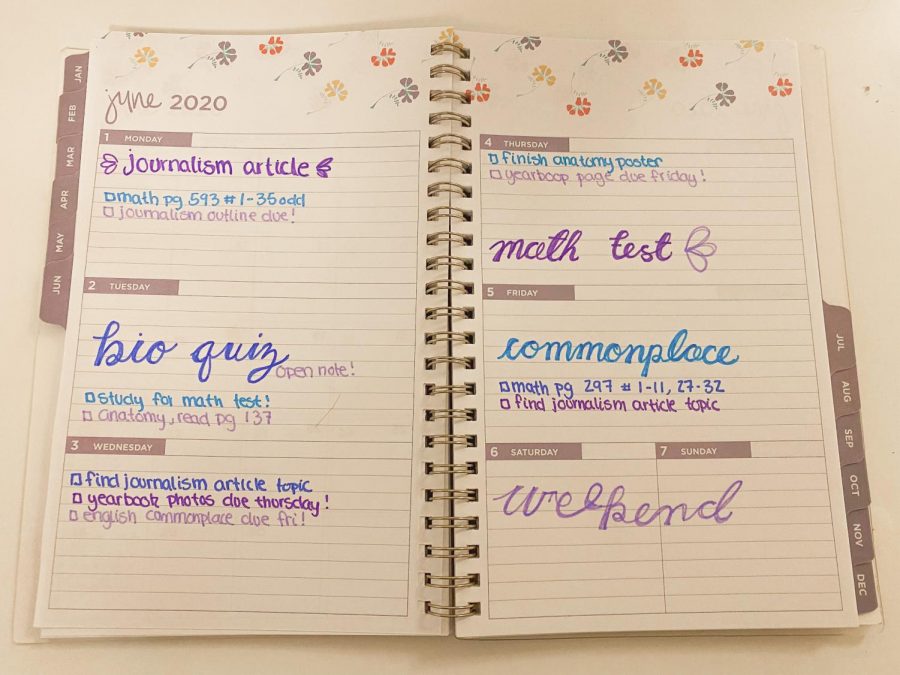 JAN
FEB
MAR
APR
MAY
JUN
june 2020
1 MONDAY
journalism article
math pg 593 # 1-35 odd
journalism outline due!
2 TUESDAY
bio quiz
open note!
study for math test!
anatomy, read pg 137
3 WEDNESDAY
find journalism article topic
yearbook photos due thursday!
english commonplace due fri!
4 THURSDAY
finish anatomy poster
yearboop page due friday!
math test
5 FRIDAY
commonplace
math pg 297 # 1-11, 27-32
find journalism article topic
6 SATURDAY
7 SUNDAY
weekend
JUL
AUG
SEP
OCT
NOV
DEC